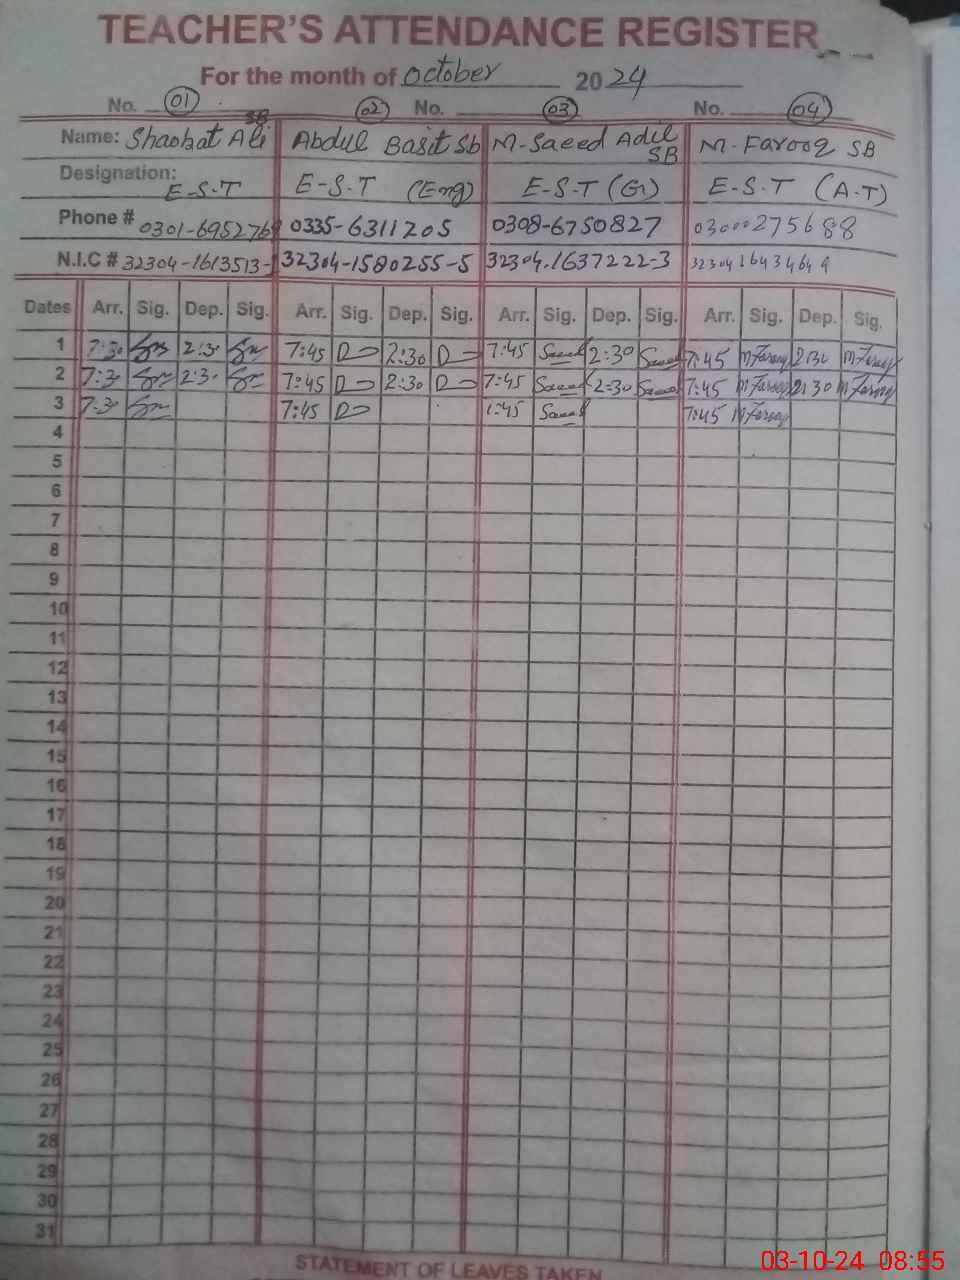 TEACHER'S ATTENDANCE REGISTER
For the month of October 2024
No. 01 02 No. 03 No. 04
Name: Shaokat Ali SB Abdul Basit Sb M-Saeed Adil SB M-Farooq SB
Designation: E-S-T E-S-T (Eng) E-S-T (G) E-S-T (A-T)
Phone # 0301-6952768 0335-6311205 0308-6750827 03000275688
N.I.C # 32304-1613513- 32304-1580255-5 32304.1637222-3
Dates Arr. Sig. Dep. Sig. Arr. Sig. Dep. Sig. Arr. Sig. Dep. Sig. Arr. Sig. Dep. Sig.
1 7:30 2:30 7:45 2:30 7:45 Saeed 2:30 Saeed 7:45 M Farooq 2:30 M Farooq
2 7:30 2:30 7:45 2:30 7:45 Saeed 2:30 Saeed 7:45 M Farooq 2:30 M Farooq
3 7:30 7:45 7:45 Saeed 7:45 M Farooq
4
5
6
7
8
9
10
11
12
13
14
15
16
17
18
19
20
21
22
23
24
25
26
27
28
29
30
31
STATEMENT OF LEAVES TAKEN
03-10-24 08:55